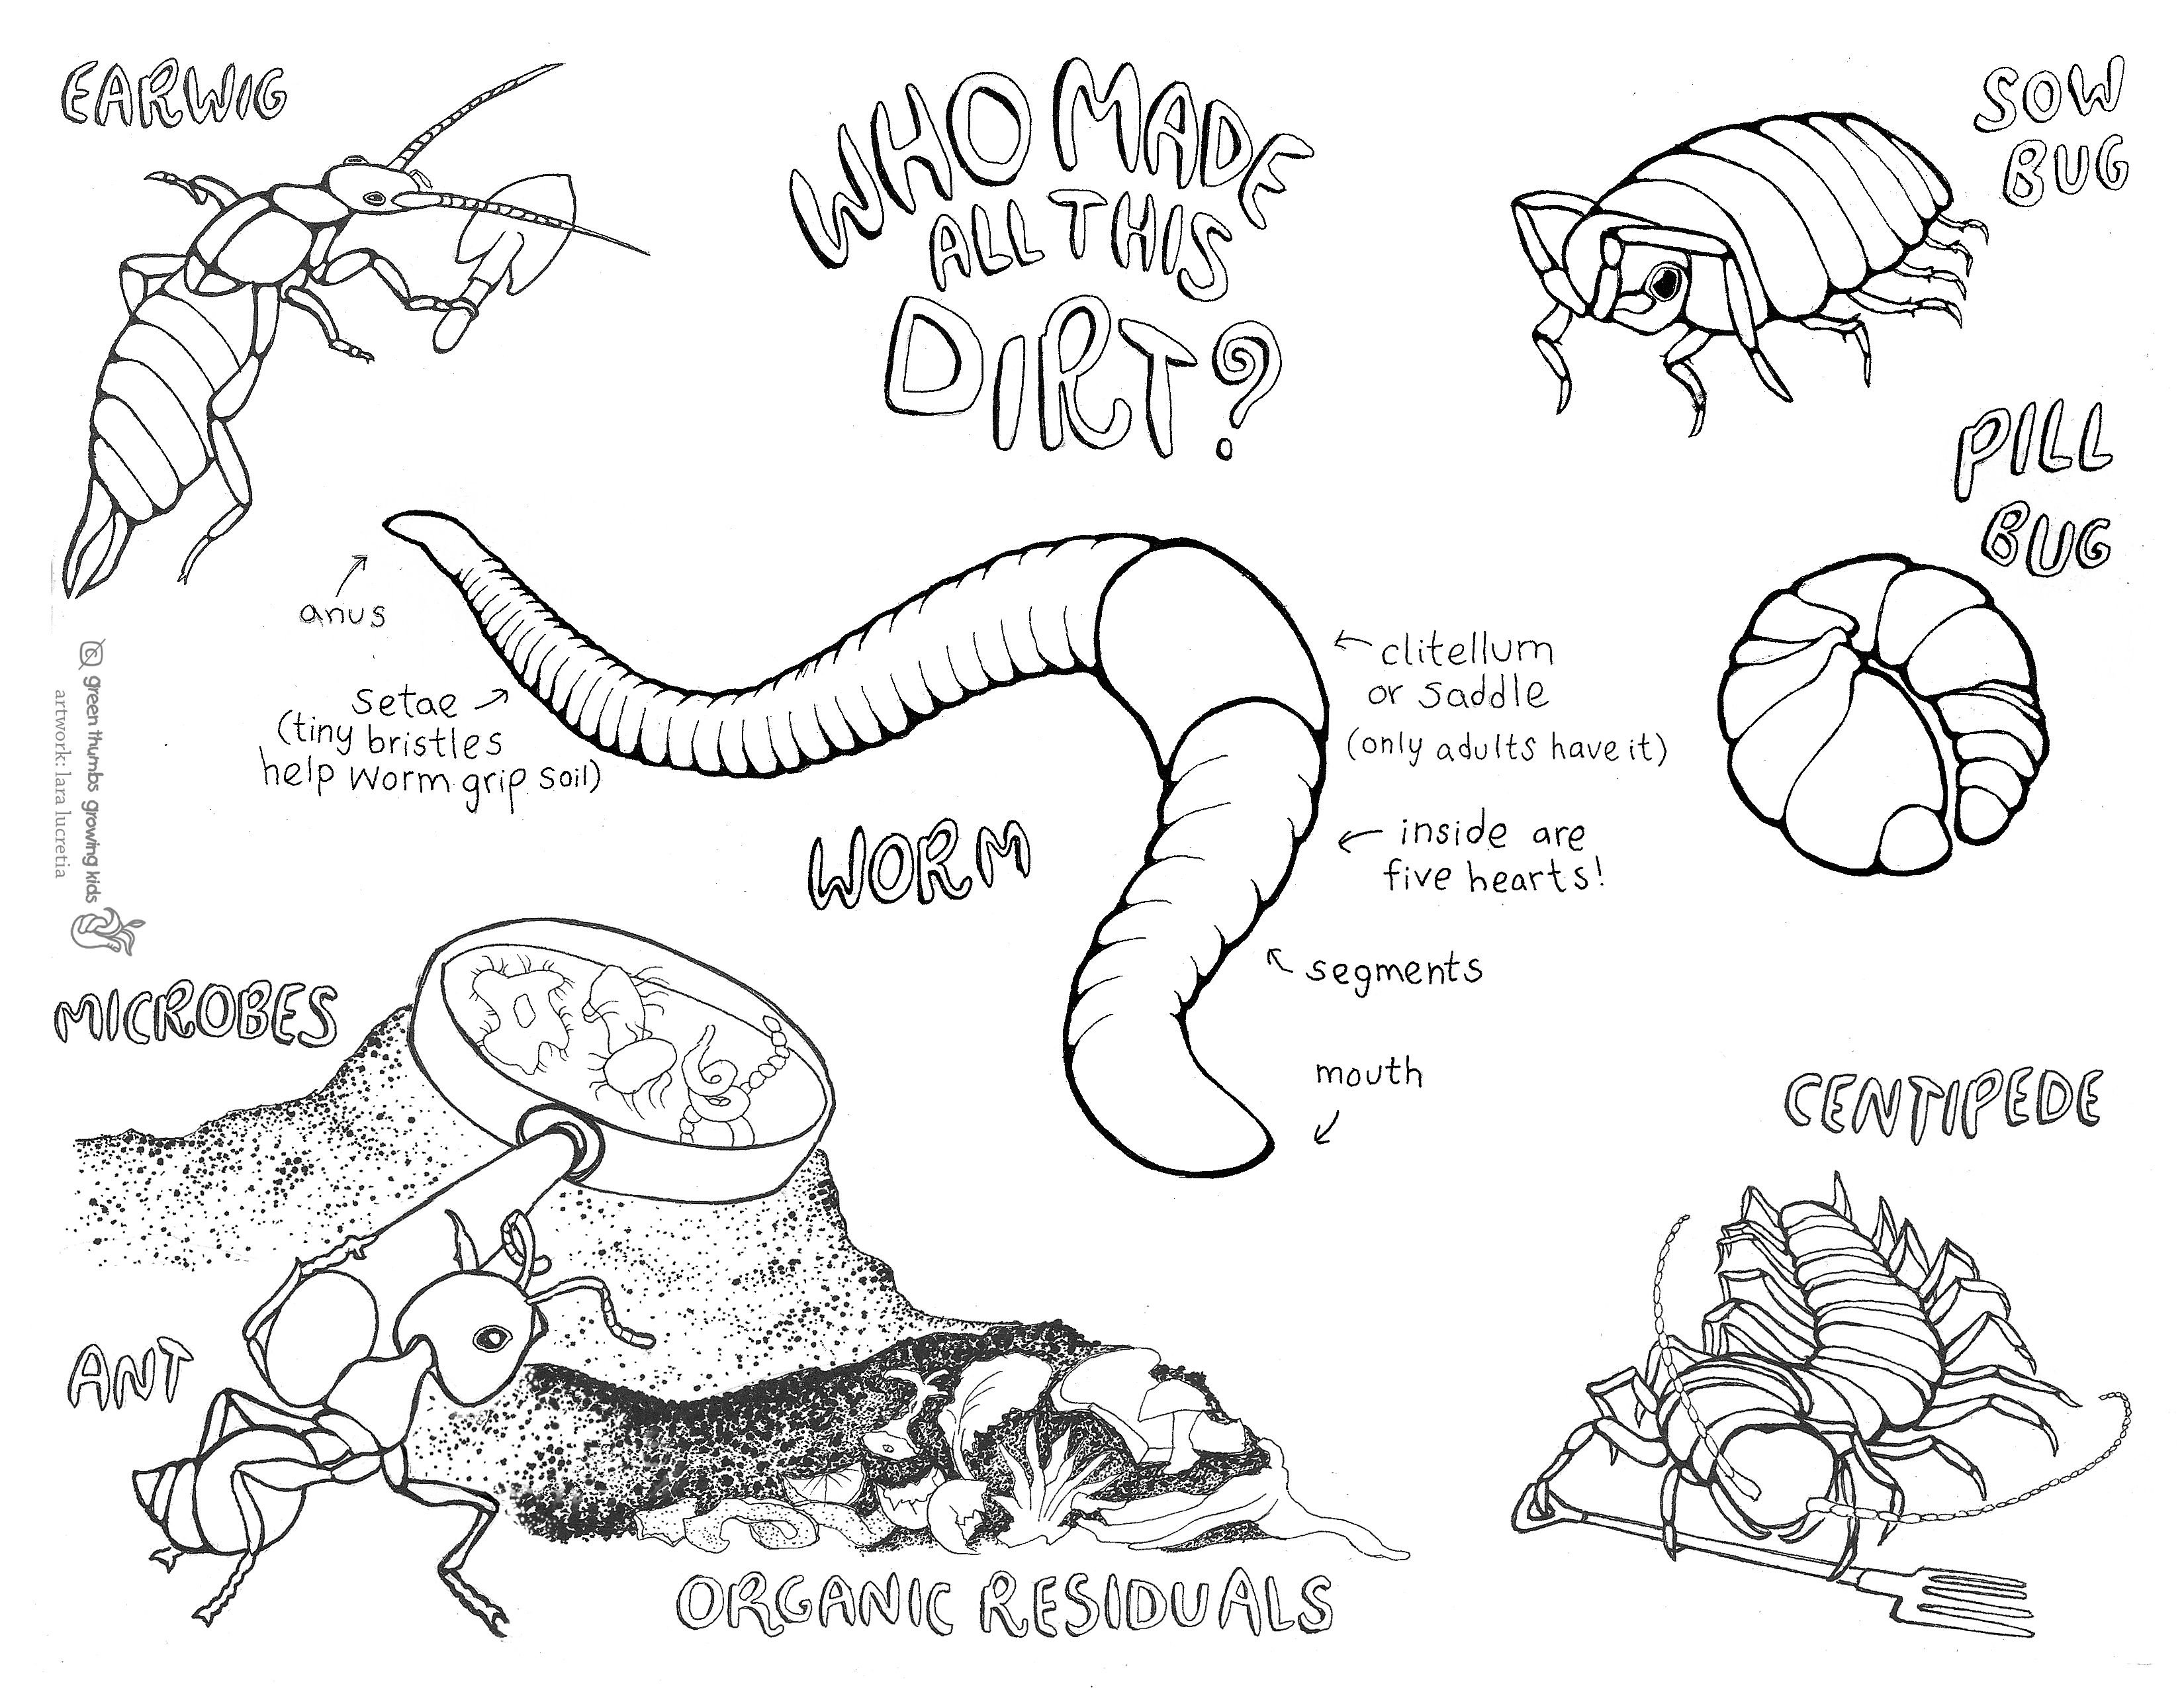 EARWIG
WHO MADE
ALL THIS
DIRT?
SOW
BUG
PILL
BUG
anus
setae
(tiny bristles
help worm grip soil)
clitellum
or saddle
(only adults have it)
inside are
five hearts!
segments
mouth
WORM
green thumbs growing kids
artwork: lara lucretia
MICROBES
CENTIPEDE
ANT
ORGANIC RESIDUALS